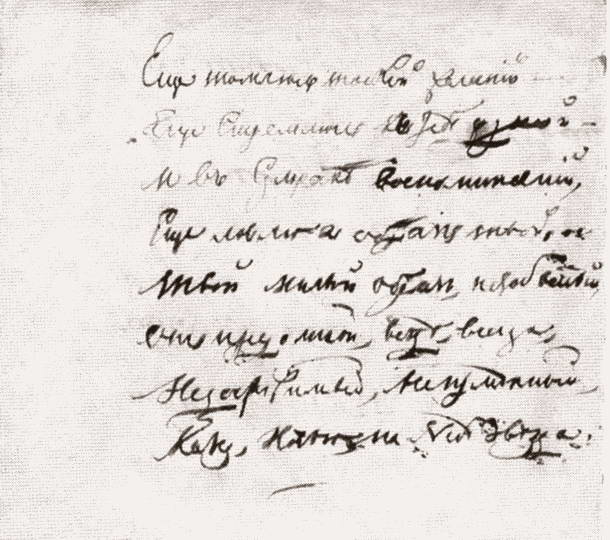 Еще томлюсь тоской желаній
Еще стремлюсь къ тебѣ душой —
И въ сумракѣ воспоминаній,
Еще ловлю я образъ твой, —
Твой милый образъ, незабвенный,
Онъ предо мной, вездѣ, всегда,
Недостижимый, неизмѣнный,
Какъ ночью на небѣ звѣзда.